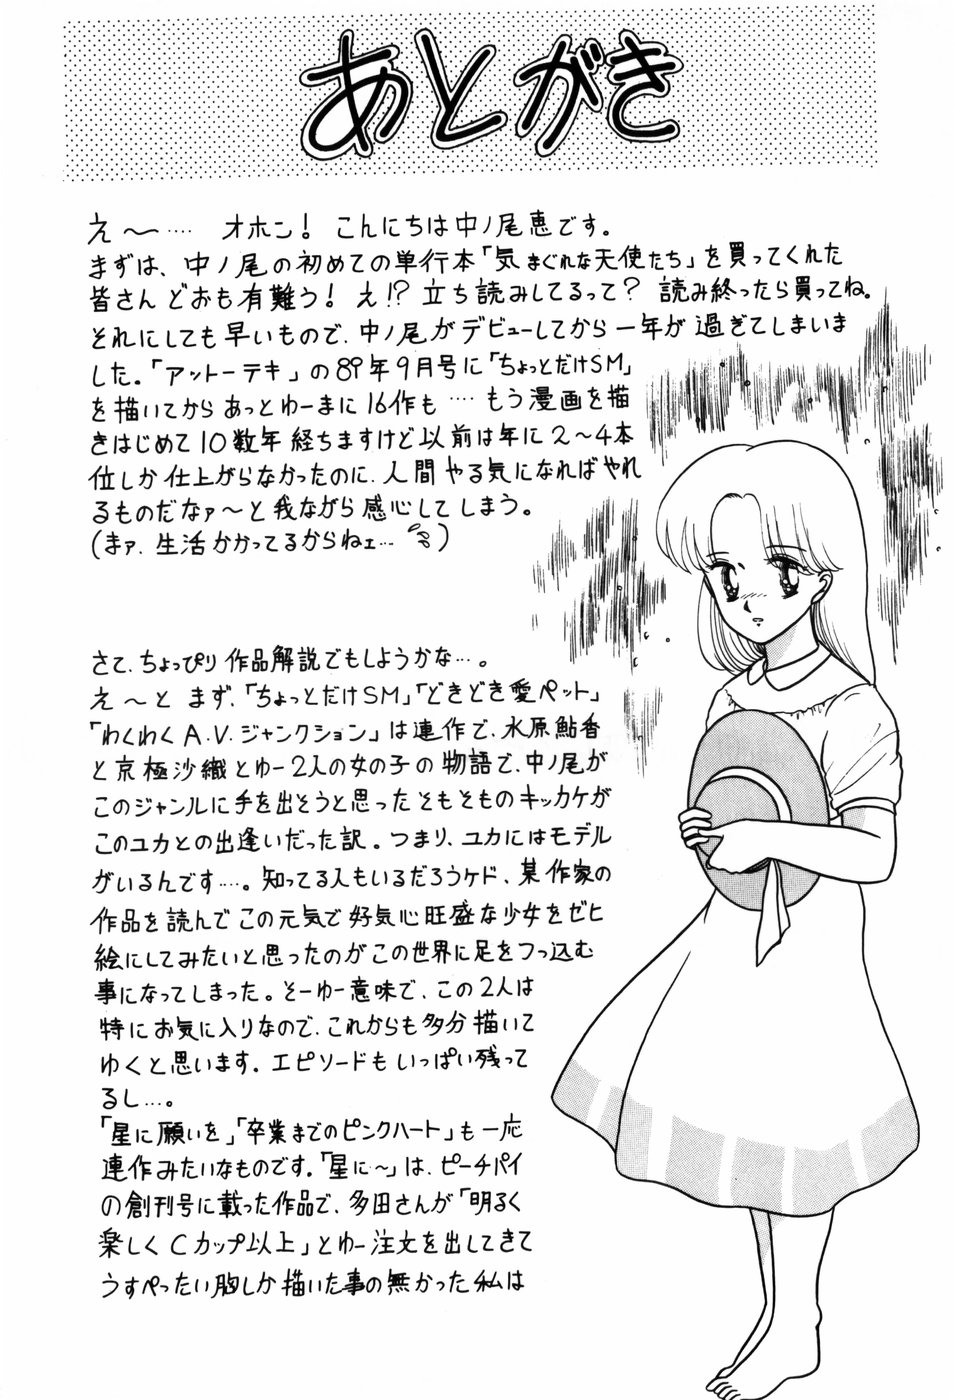 あとがき
え〜‥‥ オホン! こんにちは中ノ尾恵です。
まずは、中ノ尾の初めての単行本「気まぐれな天使たち」を買ってくれた
皆さんどおも有難う! え!? 立ち読みしてるって? 読み終ったら買ってね。
それにしても早いもので、中ノ尾がデビューしてから一年が過ぎてしまいま
した。「アットーテキ」の89年9月号に「ちょっとだけSM」
を描いてからあっとゆーまに16作も‥‥もう漫画を描
きはじめて10数年経ちますけど以前は年に2〜4本
位しか仕上がらなかったのに、人間やる気になればやれ
るものだなァ〜と我ながら感心してしまう。
(まァ、生活かかってるからねェ…)
さて、ちょっぴり作品解説でもしようかな…。
え〜と まず、「ちょっとだけSM」「どきどき愛ペット」
「わくわくA.V.ジャンクション」は連作で、水原鮎香
と京極沙織とゆー2人の女の子の物語で、中ノ尾が
このジャンルに手を出そうと思ったそもそものキッカケが
このユカとの出逢いだった訳。つまり、ユカにはモデル
がいるんです…。知ってる人もいるだろうケド、某作家の
作品を読んでこの元気で好気心旺盛な少女をゼヒ
絵にしてみたいと思ったのがこの世界に足をつっ込む
事になってしまった。そーゆー意味で、この2人は
特にお気に入りなので、これからも多分描いて
ゆくと思います。エピソードもいっぱい残って
るし…。
「星に願いを」「卒業までのピンクハート」も一応
連作みたいなものです。「星に〜」は、ピーチパイ
の創刊号に載った作品で、多田さんが「明るく
楽しくCカップ以上」とゆー注文を出してきて
うすぺったい胸しか描いた事の無かった私は